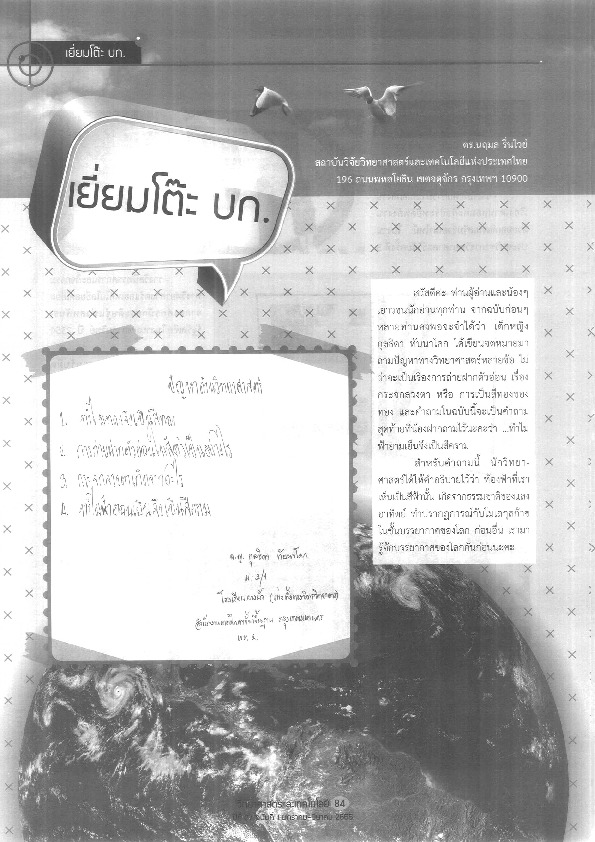 เยี่ยมโต๊ะ บก.
ดร.นฤมล รื่นไวย์
สถาบันวิจัยวิทยาศาสตร์และเทคโนโลยีแห่งประเทศไทย
196 ถนนพหลโยธิน เขตจตุจักร กรุงเทพฯ 10900
เยี่ยมโต๊ะ บก.
สวัสดีค่ะ ท่านผู้อ่านและน้องๆ
เยาวชนนักอ่านทุกท่าน จากฉบับก่อนๆ
หลายท่านคงพอจะจำได้ว่า เด็กหญิง
กุลธิดา ทับนาโคก ได้เขียนจดหมายมา
ถามปัญหาทางวิทยาศาสตร์หลายข้อ ไม่
ว่าจะเป็นเรื่องการถ่ายฝากตัวอ่อน เรื่อง
กระจกลวงตา หรือ การเป็นสีทองของ
ทอง และคำถามในฉบับนี้จะเป็นคำถาม
สุดท้ายที่น้องฝากถามไว้นะคะว่า ...ทำไม
ฟ้ายามเย็นจึงเป็นสีคราม
สำหรับคำถามนี้ นักวิทยา-
ศาสตร์ได้ให้คำอธิบายไว้ว่า ท้องฟ้าที่เรา
เห็นเป็นสีฟ้านั้น เกิดจากธรรมชาติของแสง
อาทิตย์ ทำปรากฏการณ์กับโมเลกุลก๊าซ
ในชั้นบรรยากาศของโลก ก่อนอื่น เรามา
รู้จักบรรยากาศของโลกกันก่อนนะคะ
ปัญหาด้านวิทยาศาสตร์
1. ทำไมทองจึงเป็นสีทอง
2.
3.
4.
ด.ญ. กุลธิดา ทับนาโคก
ม. 3/1
วิทยาศาสตร์และเทคโนโลยี 84